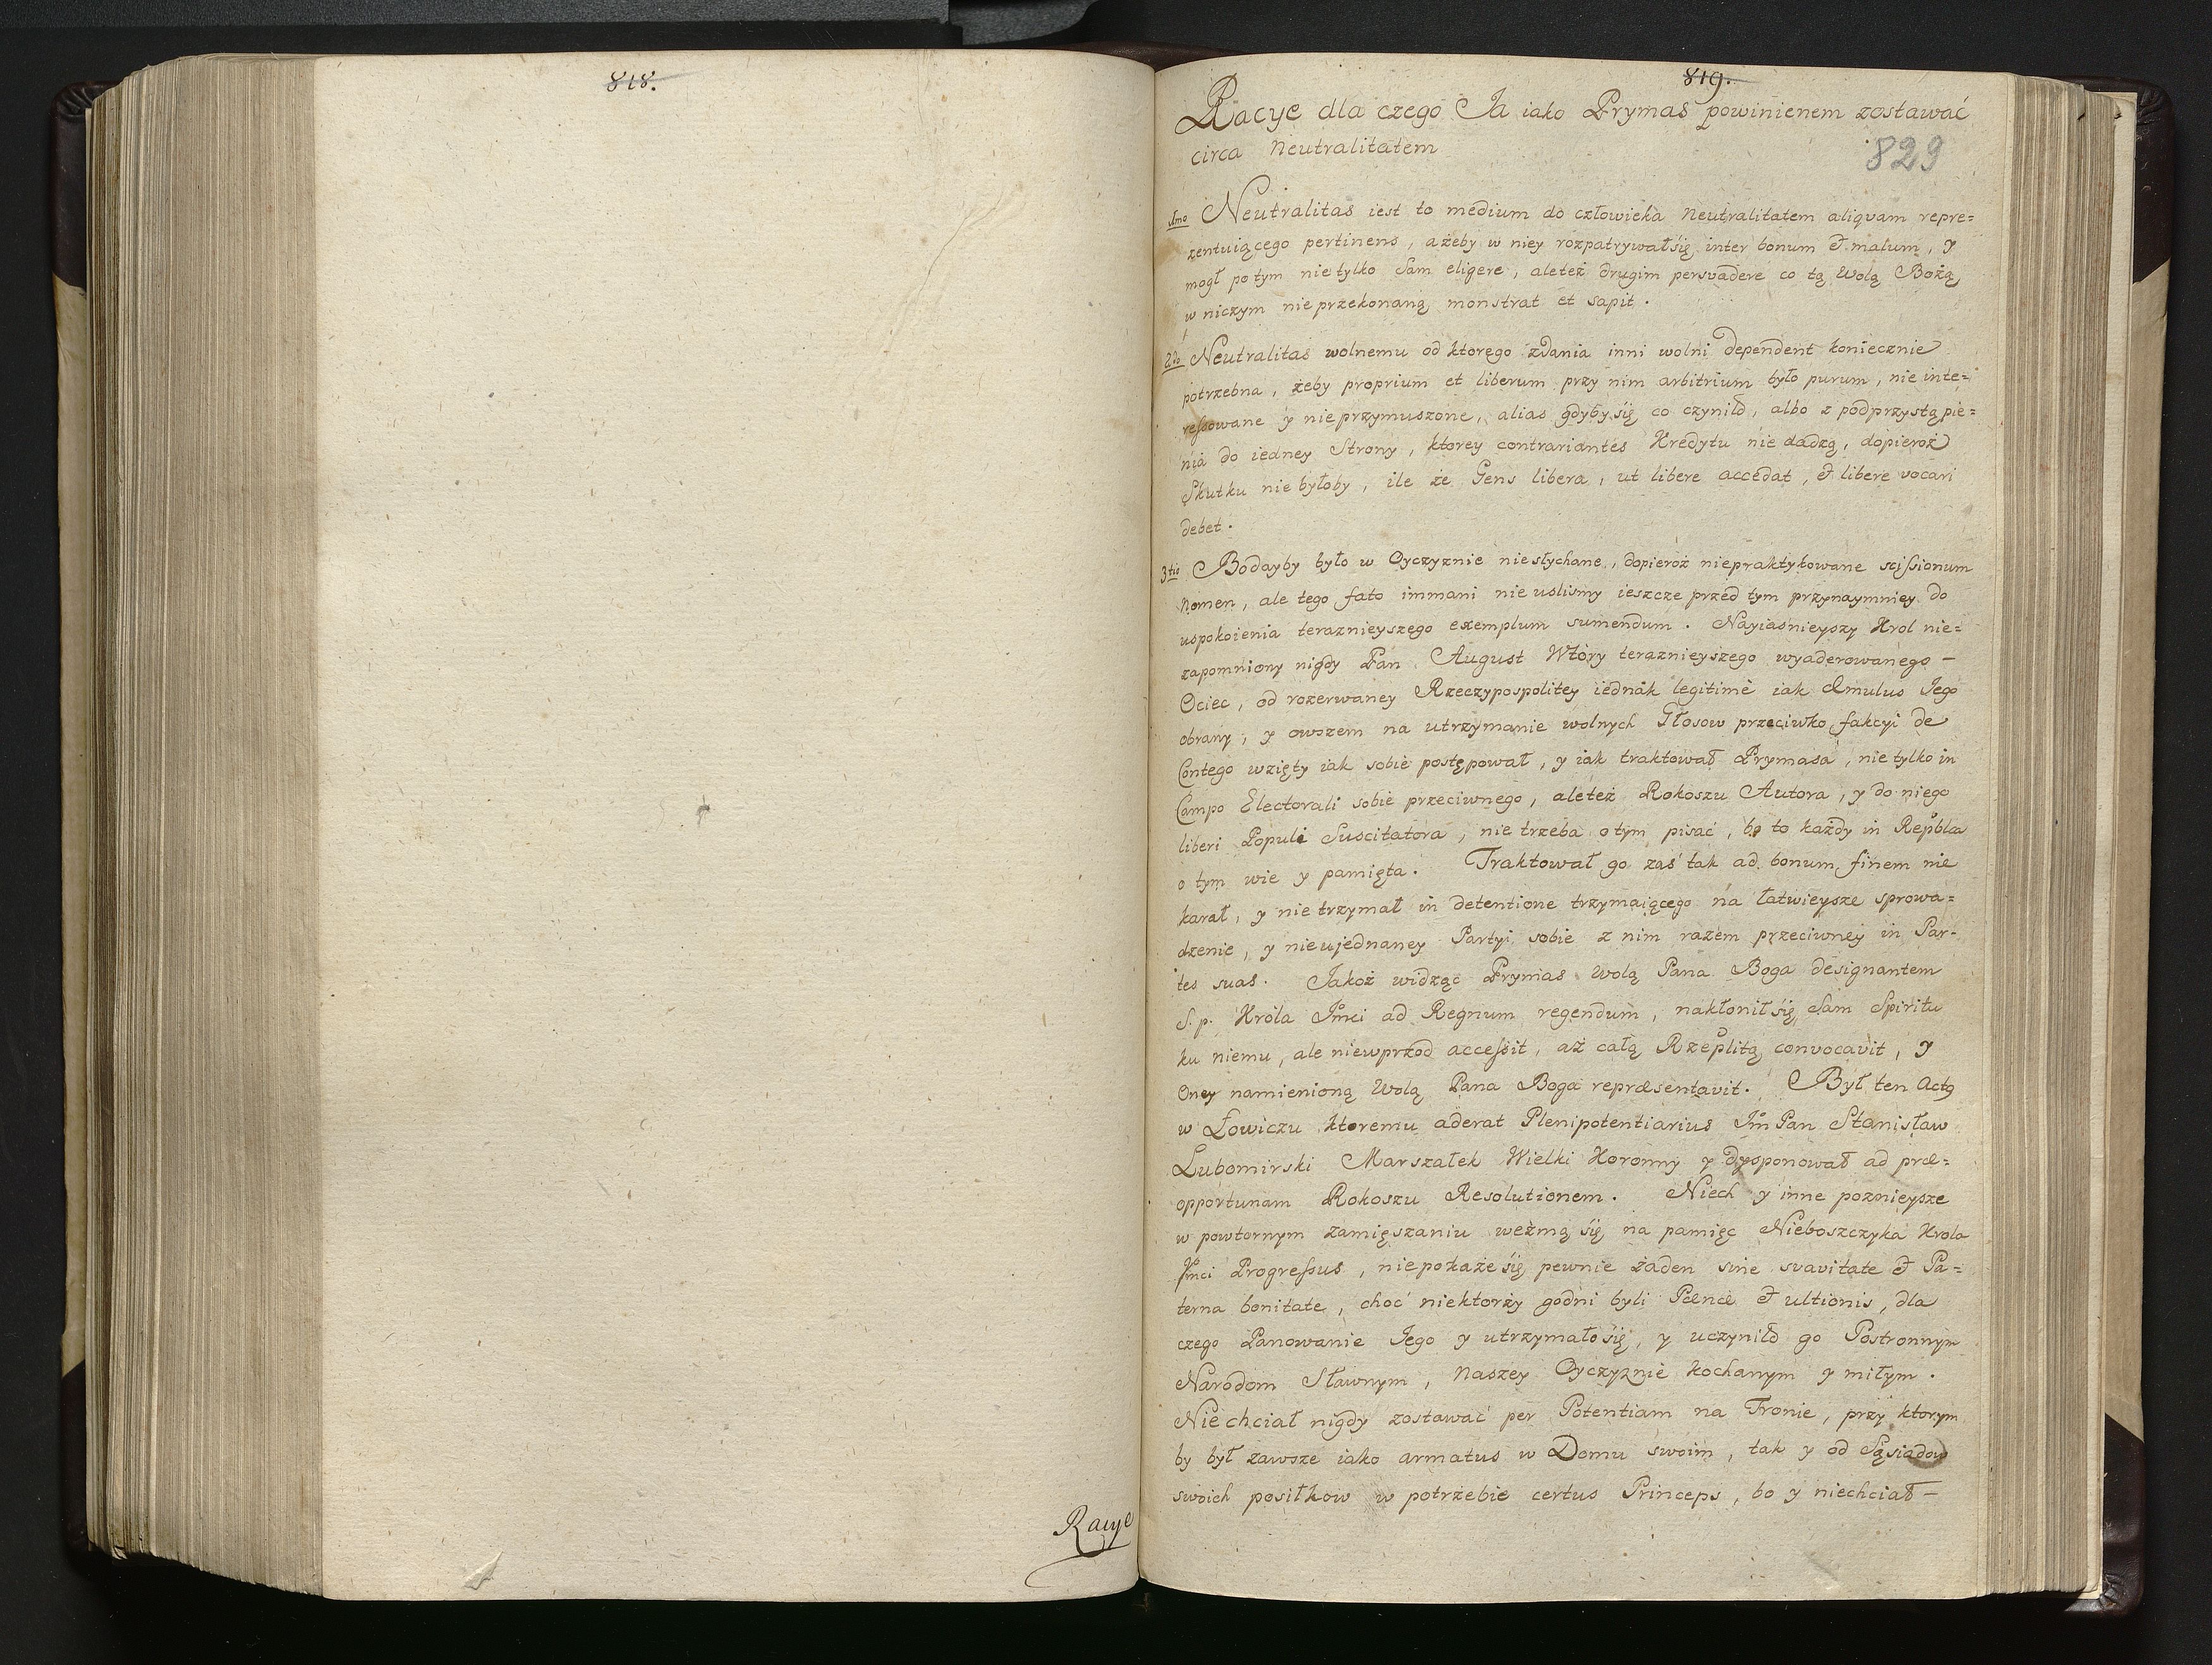 818.
Racye
819.
829
Racye dla czego Ja iako Prymas powinienem zostawać
circa Neutralitatem
1mo Neutralitas iest to medium do człowieka Neutralitatem aliquam repre=
zentuiącego pertinens, ażeby w niey rozpatrywał się inter bonum & malum, y
mogł po tym nie tylko sam eligere, ale też drugim persvadere co tą Wolą Bożą
w niczym nie przekonaną monstrat et sapit.
2do Neutralitas wolnemu od ktorego zdania inni wolni dependent koniecznie
potrzebna, żeby proprium et liberum przy nim arbitrium było purum, nie inte=
ressowane y nie przymuszone, alias gdyby się co czyniło, albo z pod przystąpie=
nia do iedney Strony, ktorey contrariantes Kredytu nie dadzą, dopieroż
Skutku nie byłoby, ile że Gens libera, ut libere accedat, & libere vocari
debet.
3tio Bodayby było w Oyczyznie niesłychane, dopieroż niepraktykowane scissionum
Nomen, ale tego fato immani nie uslismy ieszcze przed tym przynaymniey do
uspokoienia teraznieyszego exemplum sumendum. Nayiasnieyszy Krol nie=
zapomniony nigdy Pan August Wtóry teraznieyszego wyaderowanego –
Ociec, od rozerwaney Rzeczypospolitey iednak legitimè iak Æmulus Jego
obrany, y owszem na utrzymanie wolnych Głosow przeciwko fakcyi de
Contego wzięty iak sobie postępował, y iak traktował Prymasa, nie tylko in
Campo Electorali sobie przeciwnego, ale też Rokoszu Autora, y do niego
liberi Populi Suscitatora, nie trzeba o tym pisać, bo to każdy in Repblca
o tym wie y pamięta. Traktował go zaś tak ad bonum finem nie
karał, y nie trzymał in detentione trzymaiącego na łatwieysze sprowa=
dzenie, y nieujednaney Partyi sobie z nim razem przeciwney in Par-
tes suas. Jakoż widząc Prymas Wolą Pana Boga designantem
S. p. Krola Jmci ad Regnum regendum, nakłonił się sam Spiritu
ku niemu, ale niewprzod accessit, aż całą Rzeplitą convocavit, y
Oney namienioną Wolą Pana Boga repræsentavit. Był ten Actg
w Łowiczu ktoremu aderat Plenipotentiarius Jm Pan Stanisław
Lubomirski Marszałek Wielki Koronny y dysponował ad præ=
opportunam Rokoszu Resolutionem. Niech y inne poznieysze
w powtornym zamięszaniu weżmą się na pamięc Nieboszczyka Krola
Jmci Progressus, nie pokaże się pewnie żaden sine svavitate & Pa=
terna bonitate, choć niektorzy godni byli Pœnæ & ultionis, dla
czego Panowanie Jego y utrzymało się, y uczyniło go Postronnym
Narodom Sławnym, Naszey Oyczyznie kochanym y miłym.
Nie chciał nigdy zostawać per Potentiam na Tronie, przy ktorym
by był zawsze iako armatus w Domu swoim, tak y od Sąsiadow
swoich posiłkow w potrzebie certus Princeps, bo y niechciał –